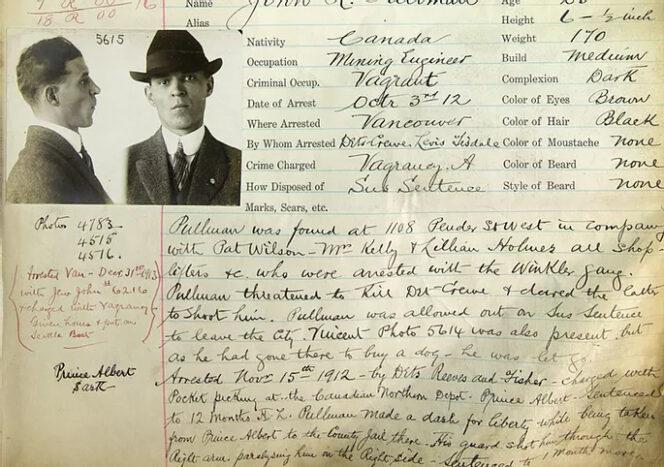 7 R 00 16
18 R 00
Name John R. Pullman
Alias
Height 6 - ½ inch
5615
Nativity Canada
Weight 170
Occupation Mining Engineer
Build Medium
Criminal Occup. Vagrant
Complexion Dark
Date of Arrest Octr 3rd 12
Color of Eyes Brown
Where Arrested Vancouver
Color of Hair Black
By Whom Arrested Dets Crewe, Levis Tisdale
Color of Moustache None
Crime Charged Vagrancy. A
Color of Beard none
How Disposed of Sus Sentence
Style of Beard none
Marks, Sears, etc.
Photos 4783
4515
4516.
Arrested Van - Decr 31st 1913
with Jew John
& charged with Vagrancy
Given hours & put on
Seattle Boat
Prince Albert
Sask
Pullman was found at 1108 Pender St West in company
with Pat Wilson - Mrs Kelly & Lillian Holmes all shop-
lifters &c. who were arrested with the Winkler gang.
Pullman threatened to kill Det Crewe & dared the latter
to shoot him. Pullman was allowed out on Sus Sentence
to leave the City. Vincent Photo 5614 was also present but
as he had gone there to buy a dog - he was let go.
Arrested Novr 15th 1912 - by Dets Reeves and Fisher - charged with
Pocket picking at the Canadian Northern Depot. Prince Albert. Sentenced
to 12 months H. L. Pullman made a dash for liberty while being taken
from Prince Albert to the County Jail there. His guard shot him through the
Right arm. paralysing him on the Right Side - Sentenced to 1 Month more